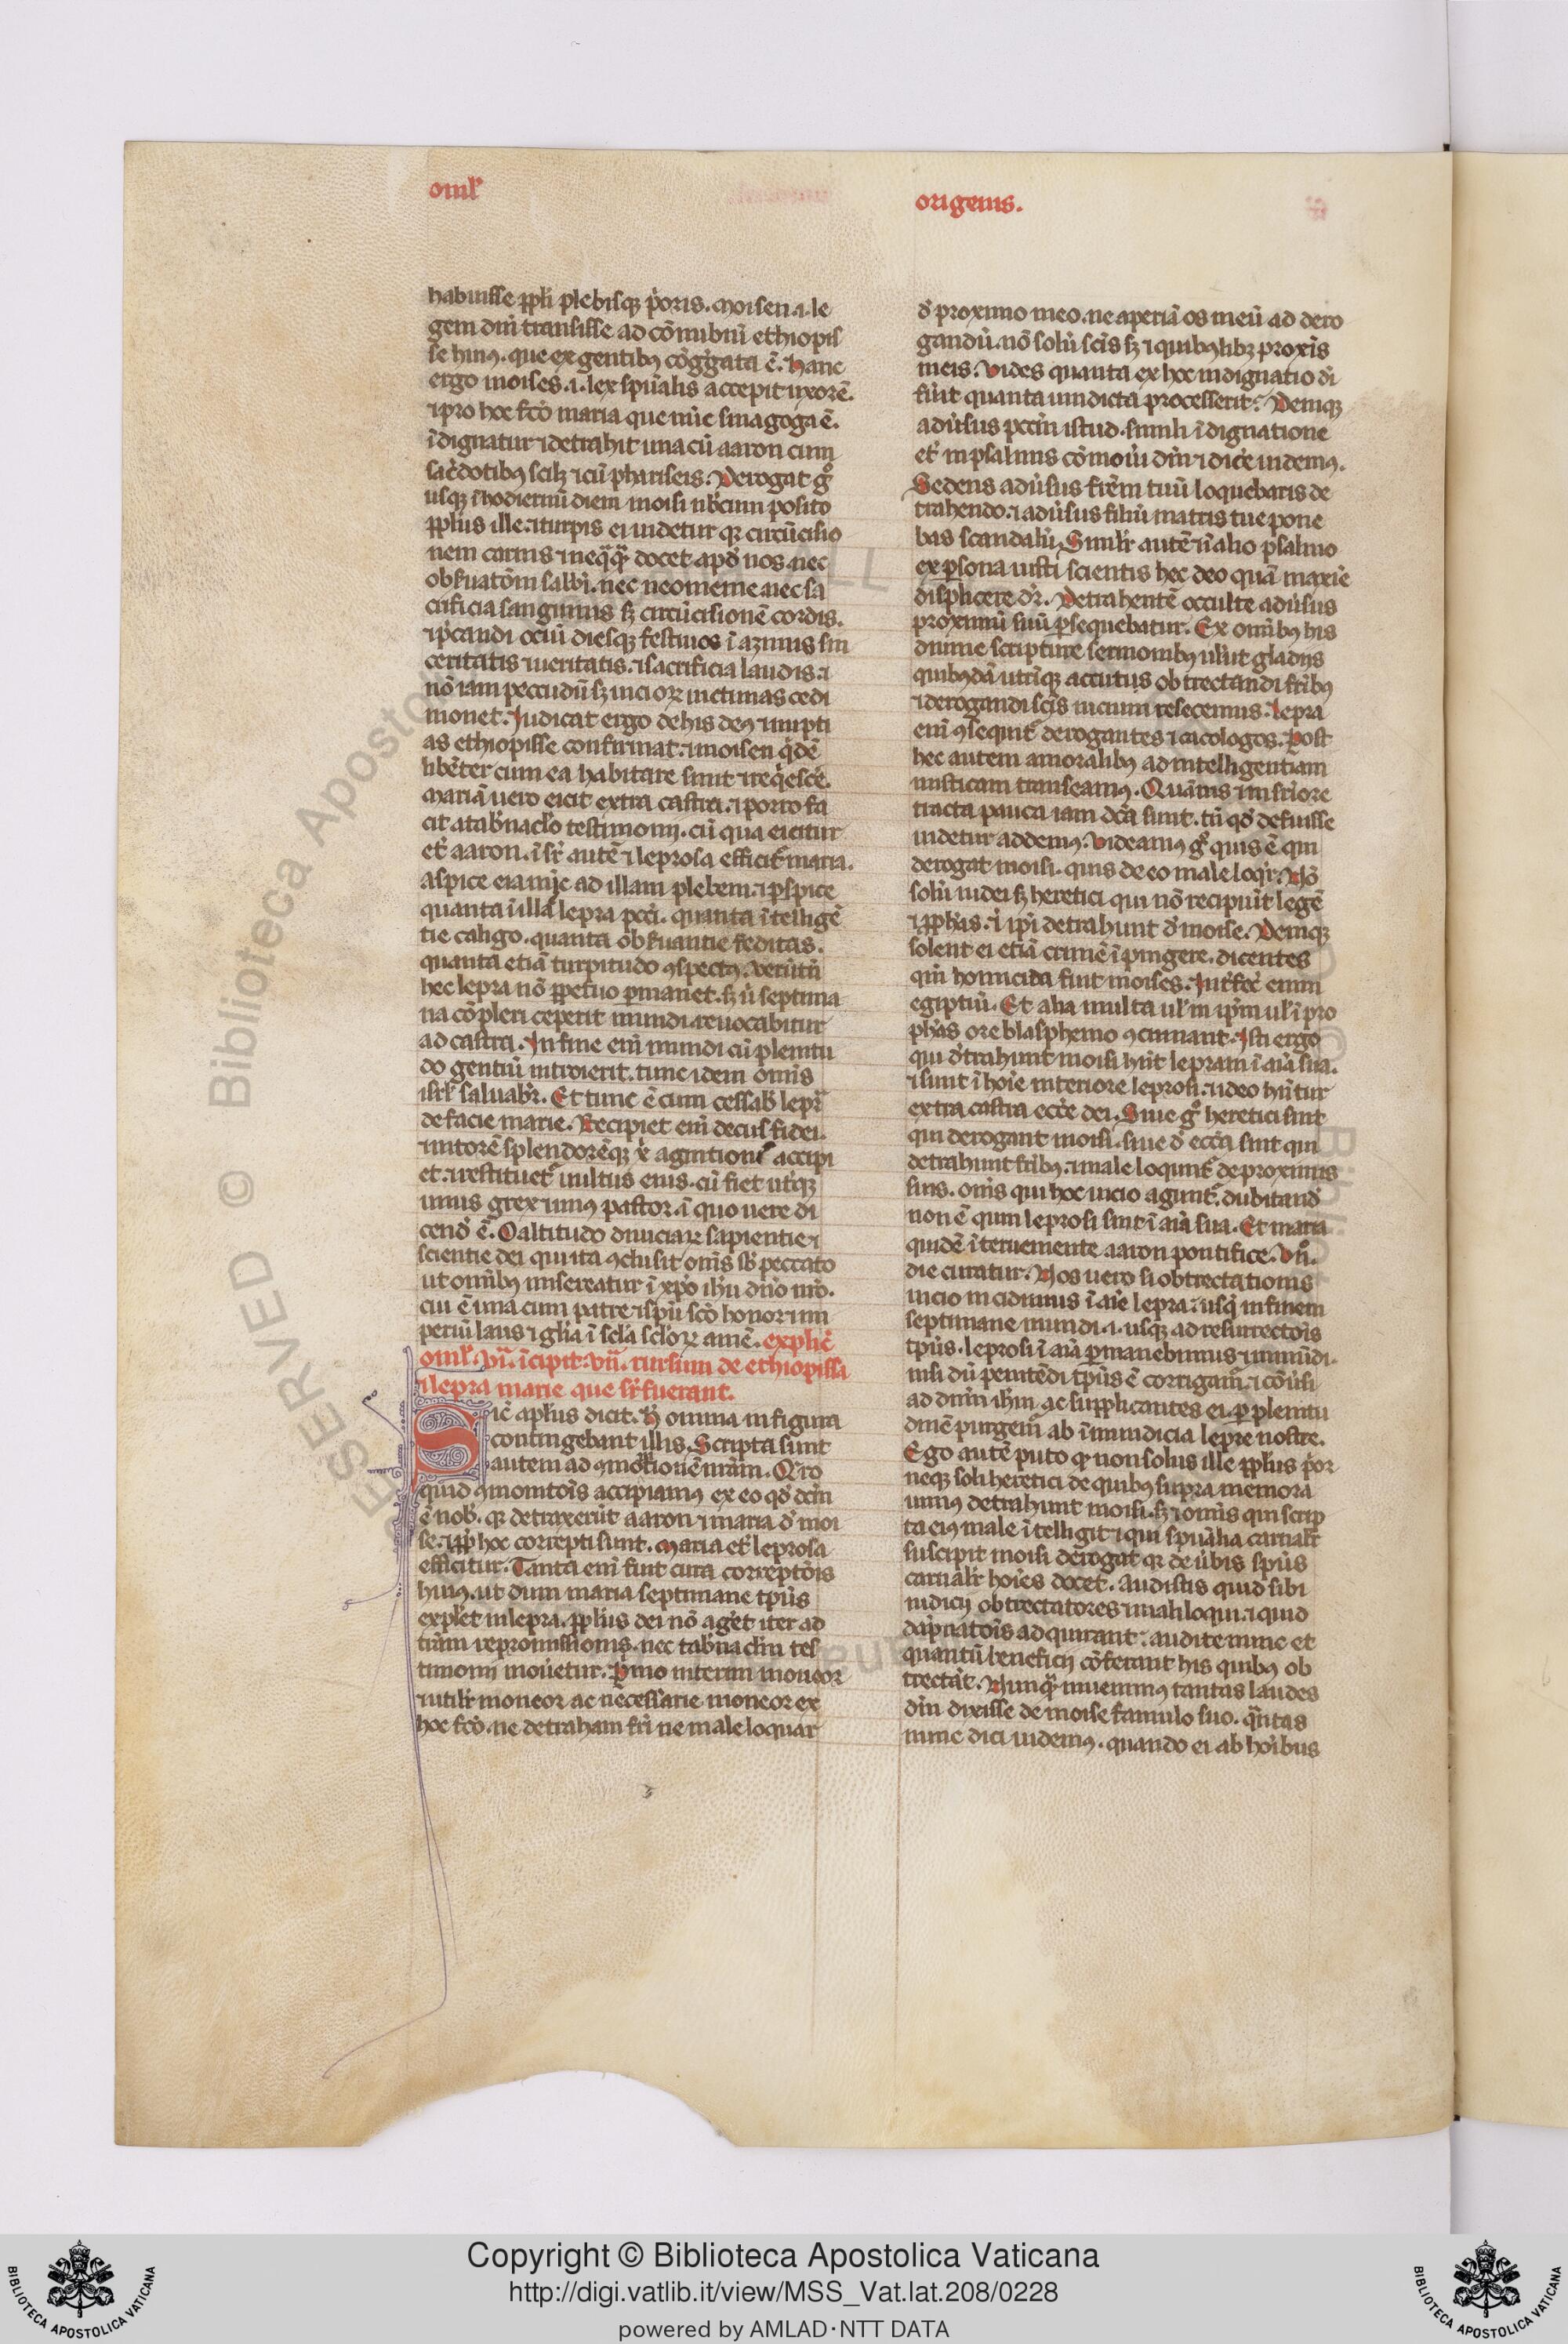 omł
origenis.
habuisse ppłi plebisqꝫ p̓oris. moisen .i. le
gem dn̄i transisse ad cōnubiū ethiopis
se huiꝰ. que ex gentibꝰ cōg̓gata ē. Hanc
ergo moises .i. lex spūalis accepit uxorē.
⁊ pro hoc fc̄o maria que nūc sinagoga ē.
īdignatur ⁊ detrahit una cū aaron cum
sac̓dotibꝰ scilꝫ ⁊ cū phariseis. Derogat g̊
usqꝫ ī hodiernū diem moisi
pp̄lus ille. ⁊ turpis ei uidetur qꝛ circūcisio
nem carnis docet apd̓ nos. nec
obꝑuatōm sabbi. nec neomenie. nec sa
crificia sanguinis sꝫ circūcisionē cordis.
diesqꝫ festiuos ī azimis sin
ceritatis ⁊ ueritatis. ⁊ sacrificia laudis. ⁊
nō iam peccudū sꝫ uicioꝝ uictimas cedi
monet. Iudicat ergo de his deꝰ ⁊ nupti
as ethiopisse confirmat. ⁊ moisen q̓dē
libēter cum ea habitare sinit ⁊ req̓escē.
Mariā uero eicit extra castra. ⁊ porro fa
cit a tab̓nac̄lo testimonij. cū qua eicitur
et̓ aaron. ⁊ leprosa efficit̓ maria.
aspice ad illam plebem. ⁊ ꝑspice
quanta ī illa lepra pcc̄i. quanta ītelligē
tie caligo. quanta obꝑuantie feditas.
quanta etiā turpitudo ꝯspectꝰ. uerūtn̄
hec lepra nō ꝑpetuo ꝑmanet. sꝫ ū septima
na cōpleri ceperit mundi. reuocabitur
ad castra. In fine enī mundi cū plenitu
do gentiū introierit. tunc idem omīs
isrł saluabr̄. Et tunc ē cum cessab̄ lepr̄
de facie marie. Recipiet enī decus fidei.
⁊ nitorē splendorēqꝫ x̄ı agnitionis accipi
et. ⁊ restituet̓ uultus eius. cū fiet ut̓qꝫ
unus grex ⁊ unꝰ pastor. ī quo uere di
cend̓ ē. O altitudo diuiciaꝝ sapientie ⁊
scientie dei qui ita ꝯclusit omīs sb̓ peccato
ut omībꝰ misereatur ī xp̄o ih̄u dn̄o nr̄o.
cui ē una cum patre ⁊ spū scō honor ⁊ im
periū laus ⁊ gl̄ia ī sc̄la sc̄loꝝ amē. explic̄
omł. vı̄. īcipit. vıı̄. rursum de ethiopissa
⁊ lepra marie que sr̄ fuerant.
Sic̄ apłus dicit. H̄ omnia in figura
contingebant illis. Scripta sunt
autem ad ꝯmonitionē nr̄am. Q̄ro
quid ꝯmonitōis accipiamꝰ ex eo qd̓ dcm̄
ē nob̄. qꝛ detraxerūt aaron ⁊ maria d̓ moi
se. ⁊ ꝓp̄ hoc correpti sunt. Maria et̓ leprosa
efficitur. Tanta enī fuit cura correptōis
huiꝰ. ut dum maria septimane tp̄us
explet in lepra. pp̄lus dei nō aget iter ad
trām repromissionis. nec tab̓naclm̄ tes
timonij mouetur. P̓mo interim moneor
⁊ utilr̄ moneor ac necessarie moneor ex
hoc fc̄o. ne detraham fr̄i ne male loquar
d̓ proximo meo. ne aperiā os meū ad dero
gandū. nō solū scīs sꝫ ⁊ quibꝰlibꝫ proxīs
meis. Vides quanta ex hoc indignatio di
fuit quanta uindicta processerit. Deniqꝫ
adūsus pccm̄ istud. simili īdignatione
et̓ in psalmis cōmoūi dm̄ ⁊ dicē uidemꝰ.
Sedens adūsus frēm tuū loquebaris de
trahendo. ⁊ adūsus filiū matris tue pone
bas scandalū. Similr̄ autē ⁊ ī alio psalmo
ex ꝑsona iusti scientis hec deo quā maxīe
displicere dr̄. Detrahentē occulte adūsus
proximū suū ꝑsequebatur. Ex omībꝰ his
diuine scripture sermonibꝰ uelut gladijs
quibꝰdā utriqꝫ accutus obtrectandi fr̄ibꝰ
⁊ derogandi scīs uicium resecemus. Lepra
enī ꝯsequit̓ derogantes ⁊ cacologos. Post
hec autem a moralibꝰ ad intelligentiam
misticam transeamꝰ. Quāuis in superiore
tracta pauca iam dc̄a sint. tū qd̓ defuisse
uidetur addemꝰ. Videamꝰ g̊ quis ē qui
derogat moisi. quis de eo male loqr̄. Nō
solū iudei sꝫ heretici qui nō recipiūt legē
⁊ ꝓph̄as. ⁊ ip̄i detrahunt d̓ moise. Deniqꝫ
solent ei etiā crimē īpingere. dicentes
qm̄ homicida fuit moises. Int̓fec̄ enim
egiptiū. Et alia multa ul̄ in ip̄m ul̄ ī pro
ph̄as ore blasphemo ꝯcinnant. Isti ergo
qui d̓trahunt moisi hn̄t lepram ī aīa sua.
⁊ sunt ī hoīe interiore leprosi. ⁊ ideo hn̄tur
extra castra ecc̄e dei. Siue g̊ heretici sint
qui derogant moisi. siue d̓ ecc̄a sint qui
detrahunt fr̄ibꝰ. ⁊ male loquunt̓ de proximis
suis. omīs qui hoc uicio agunt̓. dubitand̓
non ē quin leprosi sint ī aīa sua. Et maria
quidē īterueniente aaron pontifice. vıı̄.
die curatur. Nos uero si obtrectationis
uicio incidimus ī aīe lepra. usqꝫ in finem
septimane mundi .i. usqꝫ ad resurrectōis
tp̄us. leprosi ī aīa ꝑmanebimus ⁊ inmūdi.
nisi dū penitēdi tp̄us ē corrigam̄. ⁊ cōūsi
ad dn̄m ih̄m ac supplicantes ei. ꝑ plenitu
dinē purgem̄ ab īmundicia lepre nostre.
Ego autē puto qꝛ non solus ille pp̄lus p̓or
neqꝫ soli heretici de quibus supra memora
uimꝰ detrahunt moisi. sꝫ ⁊ omīs qui scrip
ta eiꝰ male ītelligit ⁊ qui spūalia carnalr̄
suscipit moisi derogat qꝛ de ūbis spūs
carnalr̄ hoīes docet. Audistis quid sibi
iudicij obtrectatores ⁊ maliloqui. ⁊ quid
dāpnatōis adquirant. audite nunc et
quantū beneficij cōferant his quibꝰ ob
trectāt. Nunqꝫ̄ inuenimꝰ tantas laudes
dīn dixisse de moise famulo suo. q̄ntas
nunc dici uidemꝰ. quando ei ab hoībus
Copyright © Biblioteca Apostolica Vaticana
http://digi.vatlib.it/view/MSS_Vat.lat.208/0228
powered by AMLAD·NTT DATA